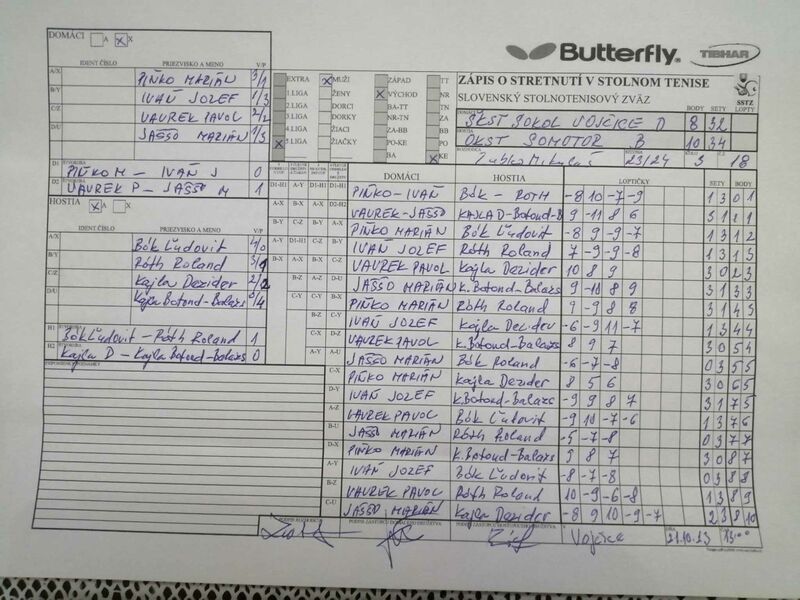 DOMÁCI A X
Butterfly
TIBHAR
IDENT ČÍSLO PRIEZVISKO A MENO V/P
A/X PIŇKO MARIÁN 3/1
B/Y IVAŇ JOZEF 1/3
C/Z VAUREK PAVOL 2/2
D/U JAŠŠO MARIÁN 1/3
EXTRA MUŽI ZÁPAD TT
1.LIGA ŽENY VÝCHOD NR
2.LIGA DORCI BA-TT TN
3.LIGA DORKY NR-TN ZA
4.LIGA ŽIACI ZA-BB BB
5.LIGA ŽIAČKY PO-KE PO
BA KE
ZÁPIS O STRETNUTÍ V STOLNOM TENISE
SLOVENSKÝ STOLNOTENISOVÝ ZVÄZ
SSTZ
BODY SETY LOPTY
ŠKST SOKOL VOJČICE D 8 32
HOSTIA
OKST SOMOTOR B 10 34
23/24 3 18
D1 PIŇKO M - IVAŇ J 0
D2 VAUREK P - JAŠŠO M 1
HOSTIA A X
IDENT ČÍSLO PRIEZVISKO A MENO V/P
A/X Bók Ľudovit 4/0
B/Y Róth Roland
C/Z Kajla Dezider 2/2
D/U Kajla Botond-Balazs 0/4
H1 Bók Ľudovit - Róth Roland 1
H2 Kajla D - Kajla Botond-Balazs 0
DOMÁCI HOSTIA LOPTIČKY SETY BODY
PIŇKO-IVAŇ Bók - ROTH -8 10 -7 -9 1 3 0 1
VAUREK-JAŠŠO KAJLA D-Botond-B 9 -11 8 6 3 1 2 1
PIŇKO MARIÁN Bók Ľudovit -8 9 -9 -7 1 3 1 2
IVAŇ JOZEF Róth Roland 7 -9 -9 -8 1 3 1 3
VAUREK PAVOL Kajla Dezider 10 8 9 3 0 2 3
JAŠŠO MARIÁN K. Botond-Balazs 9 -10 8 9 3 1 3 3
PIŇKO MARIÁN Róth Roland 9 -9 8 8 3 1 4 3
IVAŇ JOZEF Kajla Dezider -6 -9 11 -7 1 3 4 4
VAUREK PAVOL K. Botond-Balazs 8 9 7 3 0 5 4
JAŠŠO MARIÁN Bók Roland -6 -7 -8 0 3 5 5
C-X PIŇKO MARIÁN Kajla Dezider 8 5 6 3 0 6 5
D-Y IVAŇ JOZEF K. Botond-Balazs -9 9 8 7 3 1 7 5
A-Z VAUREK PAVOL Bók Ľudovit -9 10 -7 -6 1 3 7 6
B-U JAŠŠO MARIÁN Róth Roland -5 -7 -8 0 3 7 7
D-X PIŇKO MARIÁN K. Botond-Balazs 9 8 7 3 0 8 7
A-Y IVAŇ JOZEF Bók Ľudovit -8 -7 -8 0 3 8 8
B-Z VAUREK PAVOL Róth Roland 10 -9 -6 -8 1 3 8 9
C-U JAŠŠO MARIÁN Kajla Dezider -8 9 10 -9 -7 2 3 8 10
PODPIS ROZHODCU PODPIS ZÁSTUPCU DOMÁCEHO DRUŽSTVA PODPIS ZÁSTUPCU HOSŤUJÚCEHO DRUŽSTVA
Vojčice 21.10.23